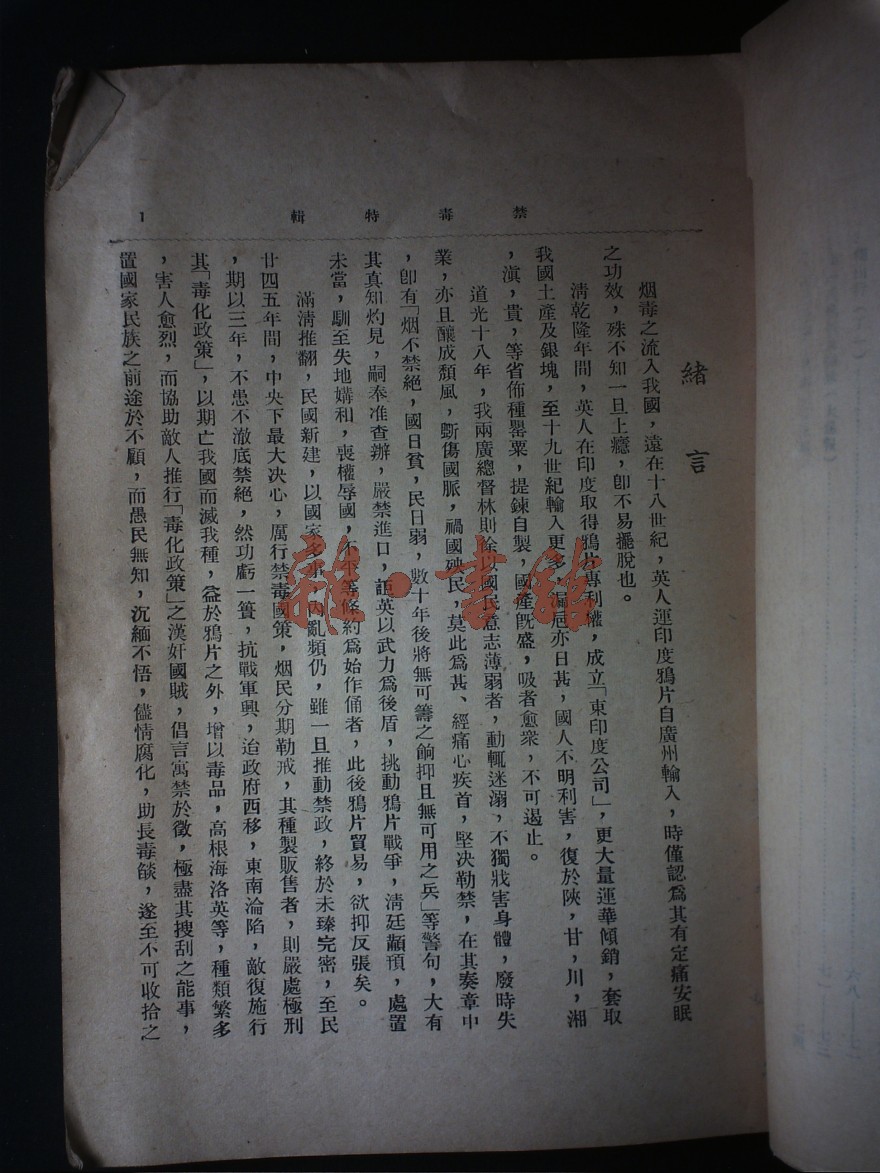 禁毒特輯
1
緒言
烟毒之流入我國，遠在十八世紀，英人運印度鴉片自廣州輸入，時僅認爲其有定痛安眠
之功效，殊不知一旦上癮，卽不易擺脫也。
淸乾隆年間，英人在印度取得鴉片專利權，成立「東印度公司」，更大量運華傾銷，套取
我國土產及銀塊，至十九世紀輸入更多，漏卮亦日甚，國人不明利害，復於陝，甘，川，湘
，滇，貴，等省佈種罌粟，提鍊自製，國產旣盛，吸者愈衆，不可遏止。
道光十八年，我兩廣總督林則徐以國民意志薄弱者，動輒迷溺，不獨戕害身體，廢時失
業，亦且釀成頽風，斲傷國脈，禍國殃民，莫此爲甚、經痛心疾首，堅決勒禁，在其奏章中
，卽有「烟不禁絕，國日貧，民日弱，數十年後將無可籌之餉抑且無可用之兵」等警句，大有
其眞知灼見，嗣奉准查辦，嚴禁進口，詎英以武力爲後盾，挑動鴉片戰爭，淸廷顢頇，處置
未當，馴至失地媾和，喪權辱國，不平等條約爲始作俑者，此後鴉片貿易，欲抑反張矣。
滿淸推翻，民國新建，以國家多事，內亂頻仍，雖一旦推動禁政，終於未臻完密，至民
廿四五年間，中央下最大決心，厲行禁毒國策，烟民分期勒戒，其種製販售者，則嚴處極刑
，期以三年，不患不澈底禁絕，然功虧一簣，抗戰軍興，迨政府西移，東南淪陷，敵復施行
其「毒化政策」，以期亡我國而滅我種，益於鴉片之外，增以毒品，高根海洛英等，種類繁多
，害人愈烈，而協助敵人推行「毒化政策」之漢奸國賊，倡言寓禁於徵，極盡其搜刮之能事，
置國家民族之前途於不顧，而愚民無知，沉緬不悟，儘情腐化，助長毒燄，遂至不可收拾之
雜·書館